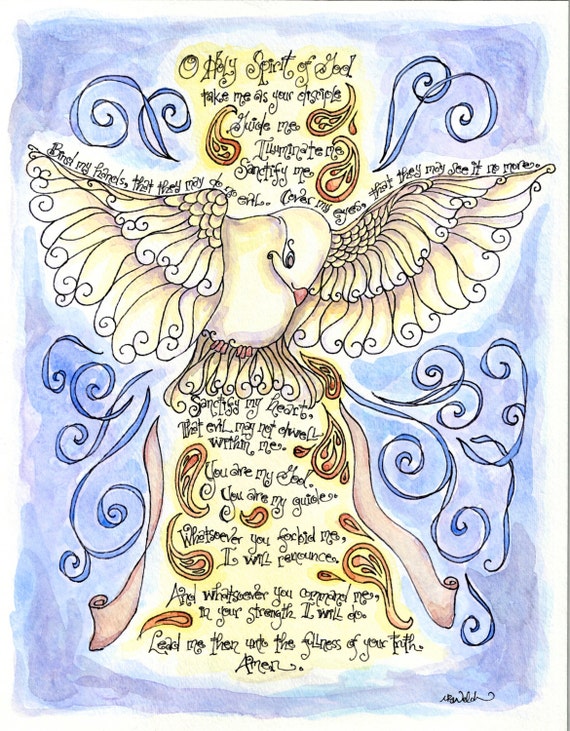 O Holy Spirit of God
take me as your disciple
Guide me
Illuminate me
Sanctify me
Bind my hands, that they may do no evil. Cover my eyes, that they may see it no more.
Sanctify my heart,
That evil may not dwell
within me.
You are my God.
You are my guide.
Whatsoever you forbid me,
I will renounce.
And whatsoever you command me,
in your strength I will do.
Lead me then unto the fullness of your truth.
Amen.